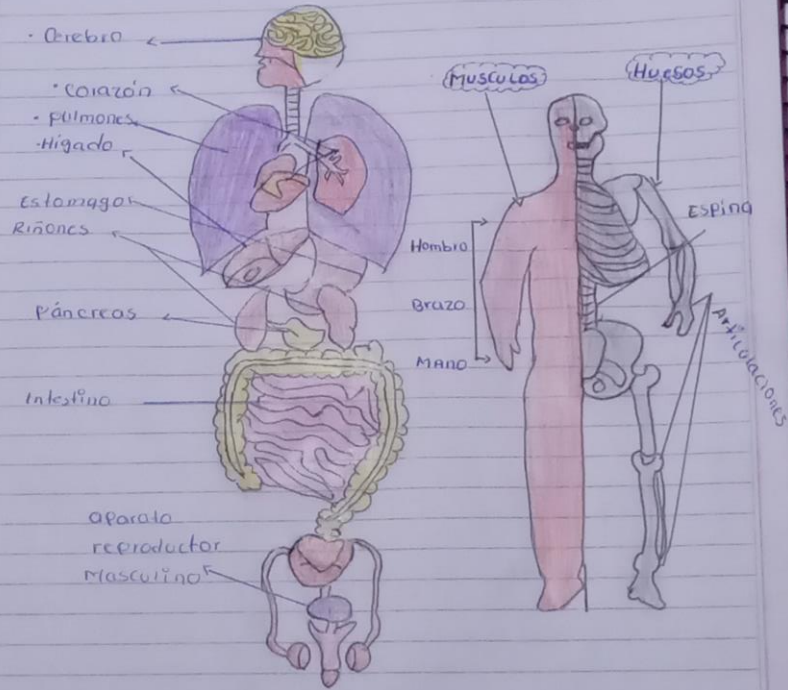 · Cerebro
· Corazón
· Pulmones
· Higado
Estomago
Riñones
Páncreas
Intestino
aparato
reproductor
Masculino
MUSCULOS
HUESOS
Hombro
Brazo
MANO
Espina
Articulaciones